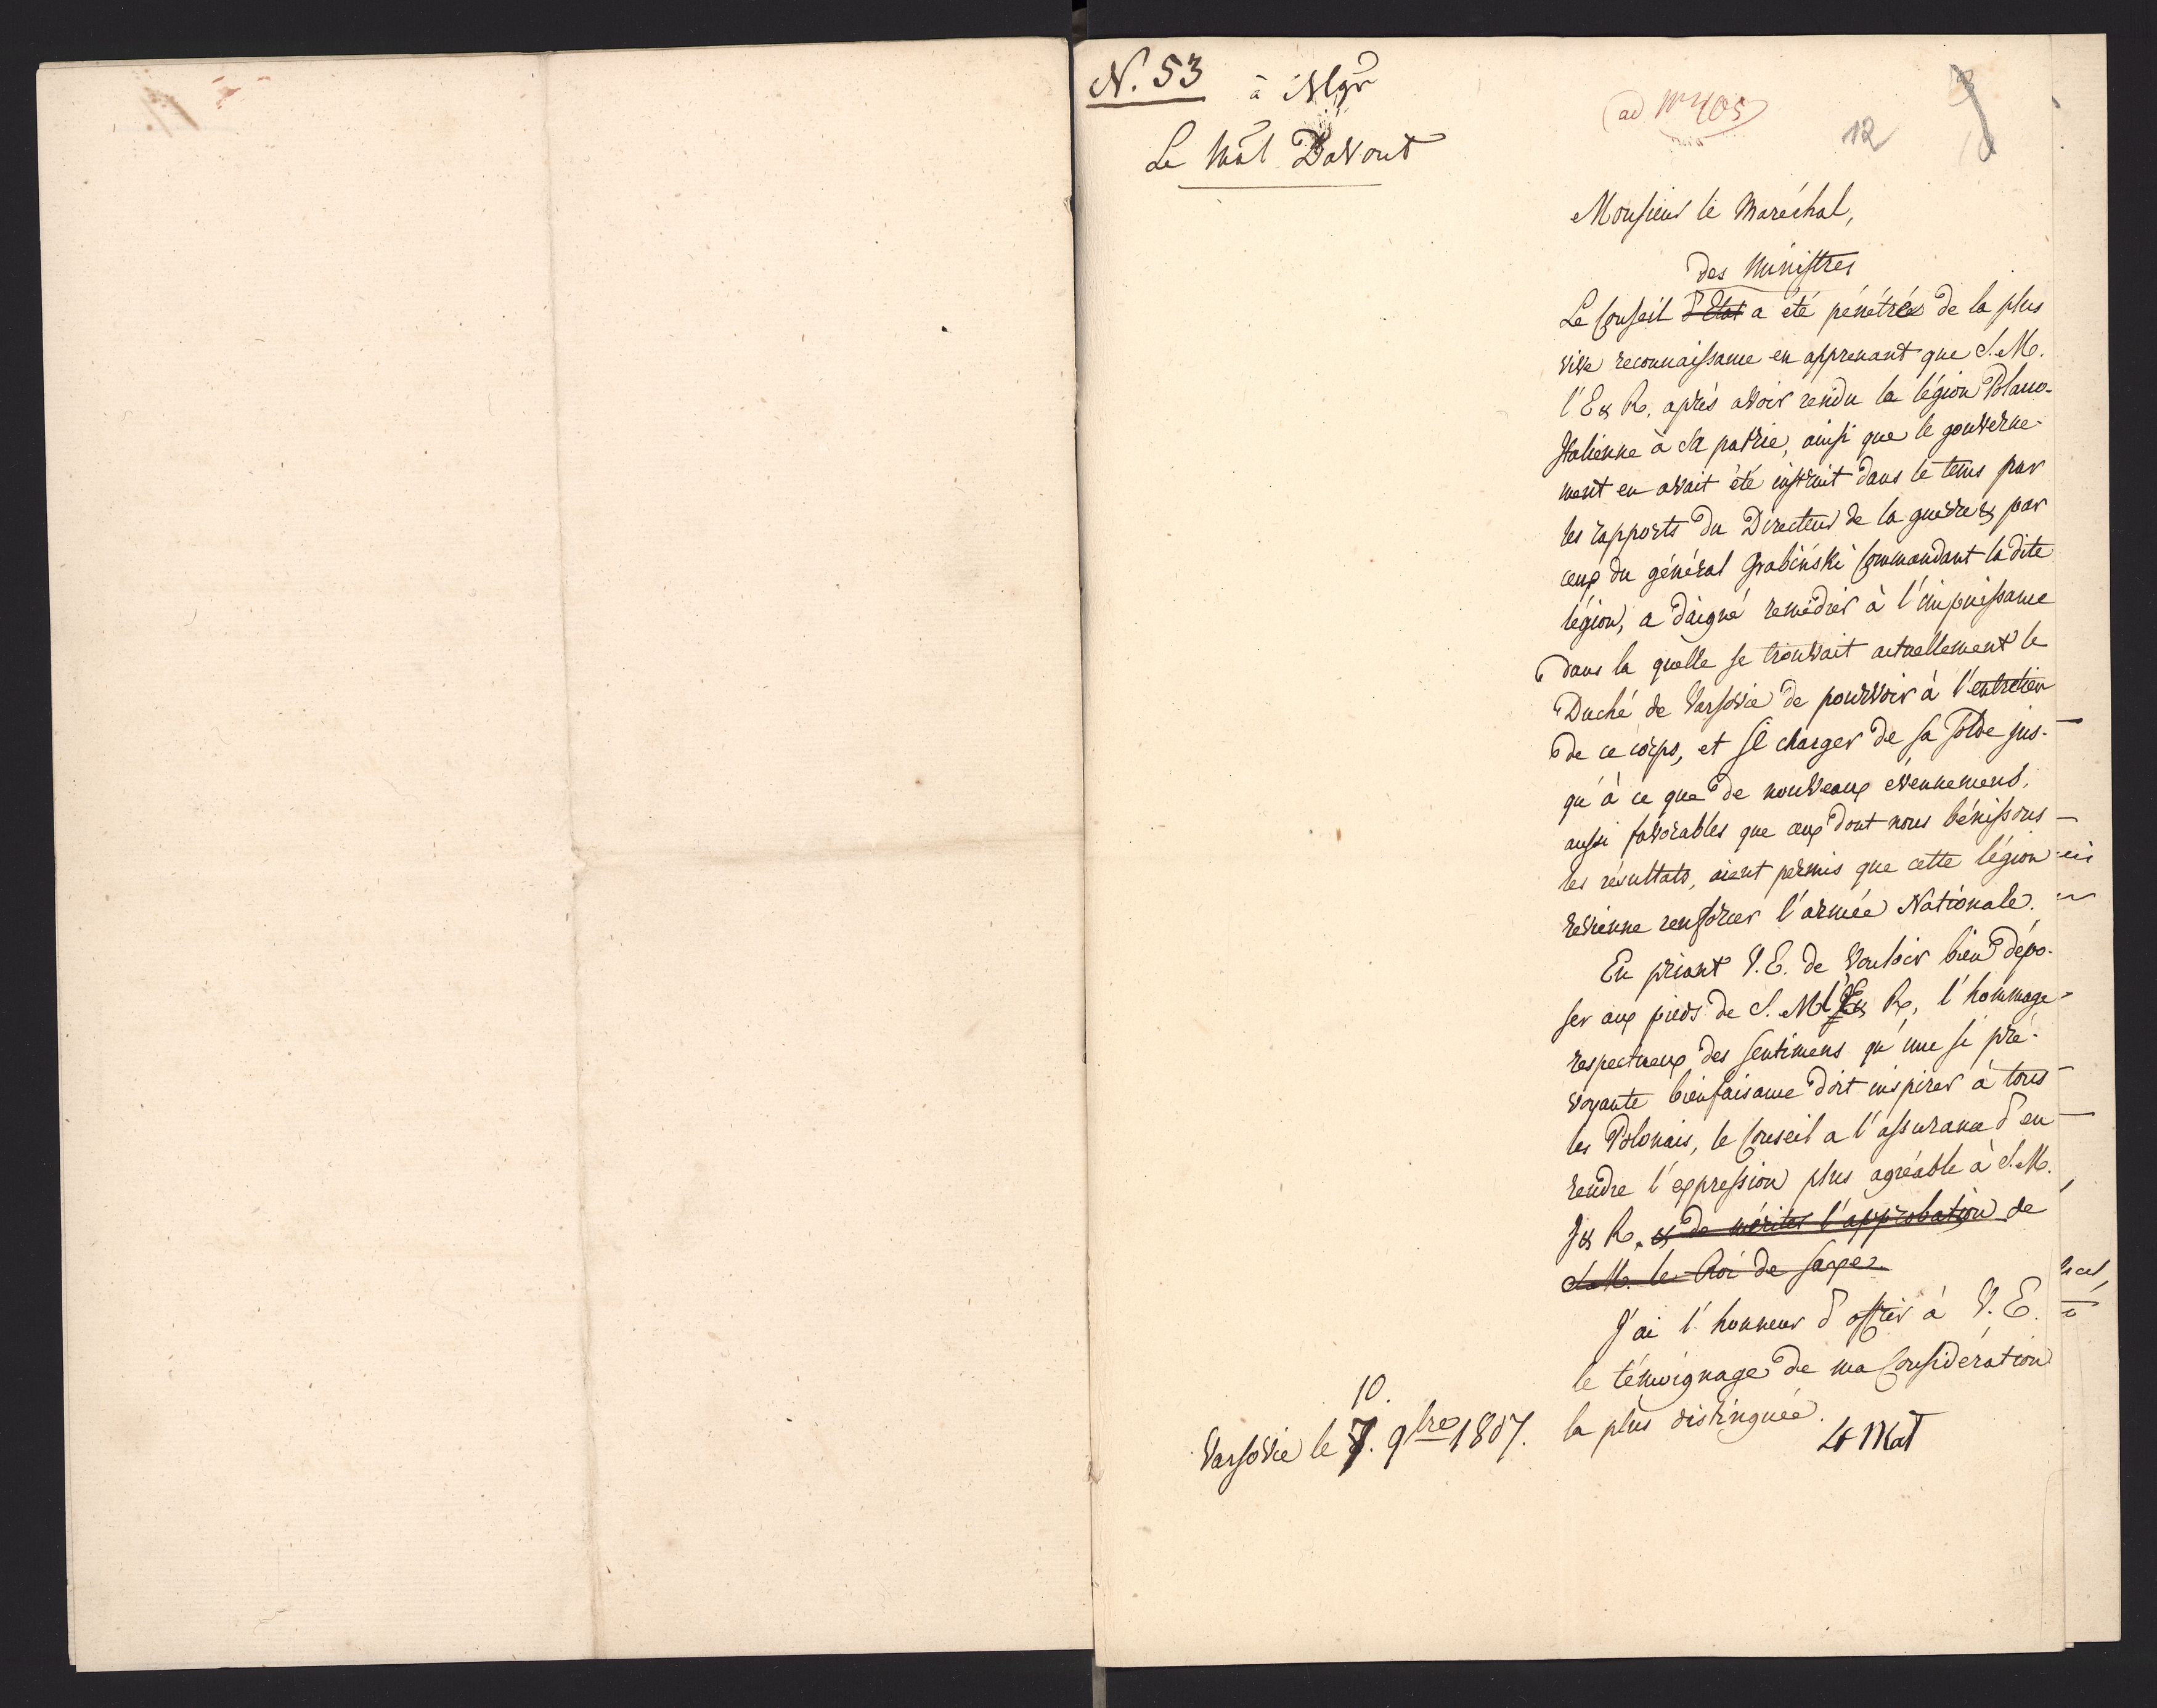 N. 53
à Mgr
Le Mâl Davout
(ad Nr 405)
12
Monsieur le Maréchal,
des Ministres
Le Conseil d'Etat a été pénétré de la plus
vive reconnaissance en apprenant que S. M.
l'E & R. après avoir rendu la légion Polano-
Italienne à sa patrie, ainsi que le gouverne-
ment en avait été instruit dans le tems par
les rapports du Directeur de la guerre & par
ceux du général Grabiński Commandant la dite
légion, a daigné remédier à l'impuissance
dans la quelle se trouvait actuellement le
Duché de Varsovie de pourvoir à l'entretien
de ce corps, et se charger de sa solde jus-
qu'à ce que de nouveaux évennemens,
aussi favorables que ceux dont nous bénissons
les résultats, aient permis que cette légion
revienne renforcer l'armée Nationale.
En priant V. E. de vouloir bien dépo-
ser aux pieds de S. M l'E & R, l'hommage
respectueux des sentimens qu'une si pré-
voyante bienfaisance doit inspirer à tous
les Polonais, le Conseil a l'assurance d'en
rendre l'expression plus agréable à S. M.
I & R. & de mériter l'approbation de
S. M. le Roi de Saxe.
J'ai l'honneur d'offrir à V. E.
le témoignage de ma Considération
la plus distinguée.
10.
Varsovie le 7. 9bre 1807.
St Mał